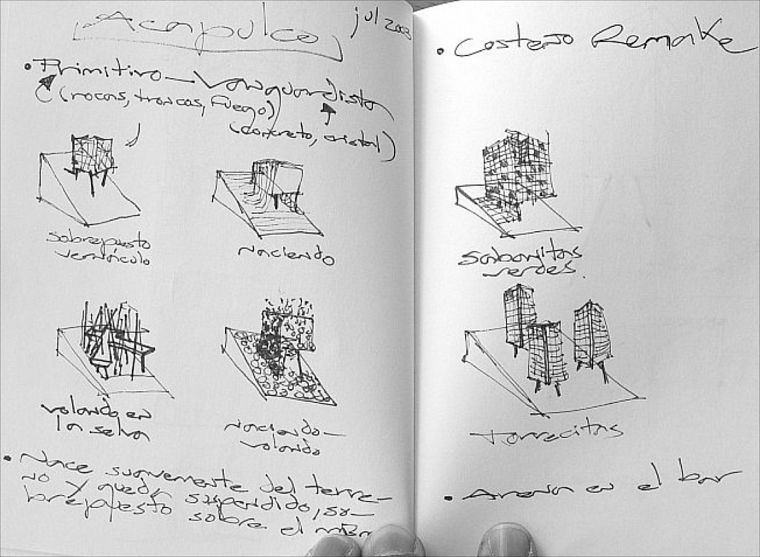 Acapulco
jul 2003
• Primitivo — Vanguardista
(rocas, troncos, fuego)
(concreto, cristal)
sobrepuesto
vernáculo
naciendo
volando en
la selva
naciendo—
volando
• Nace suavemente del terre-
no y queda suspendido, so-
brepuesto sobre el mismo
• Costero Remake
sabanitas
verdes.
Torrecitas
• Arena en el bar